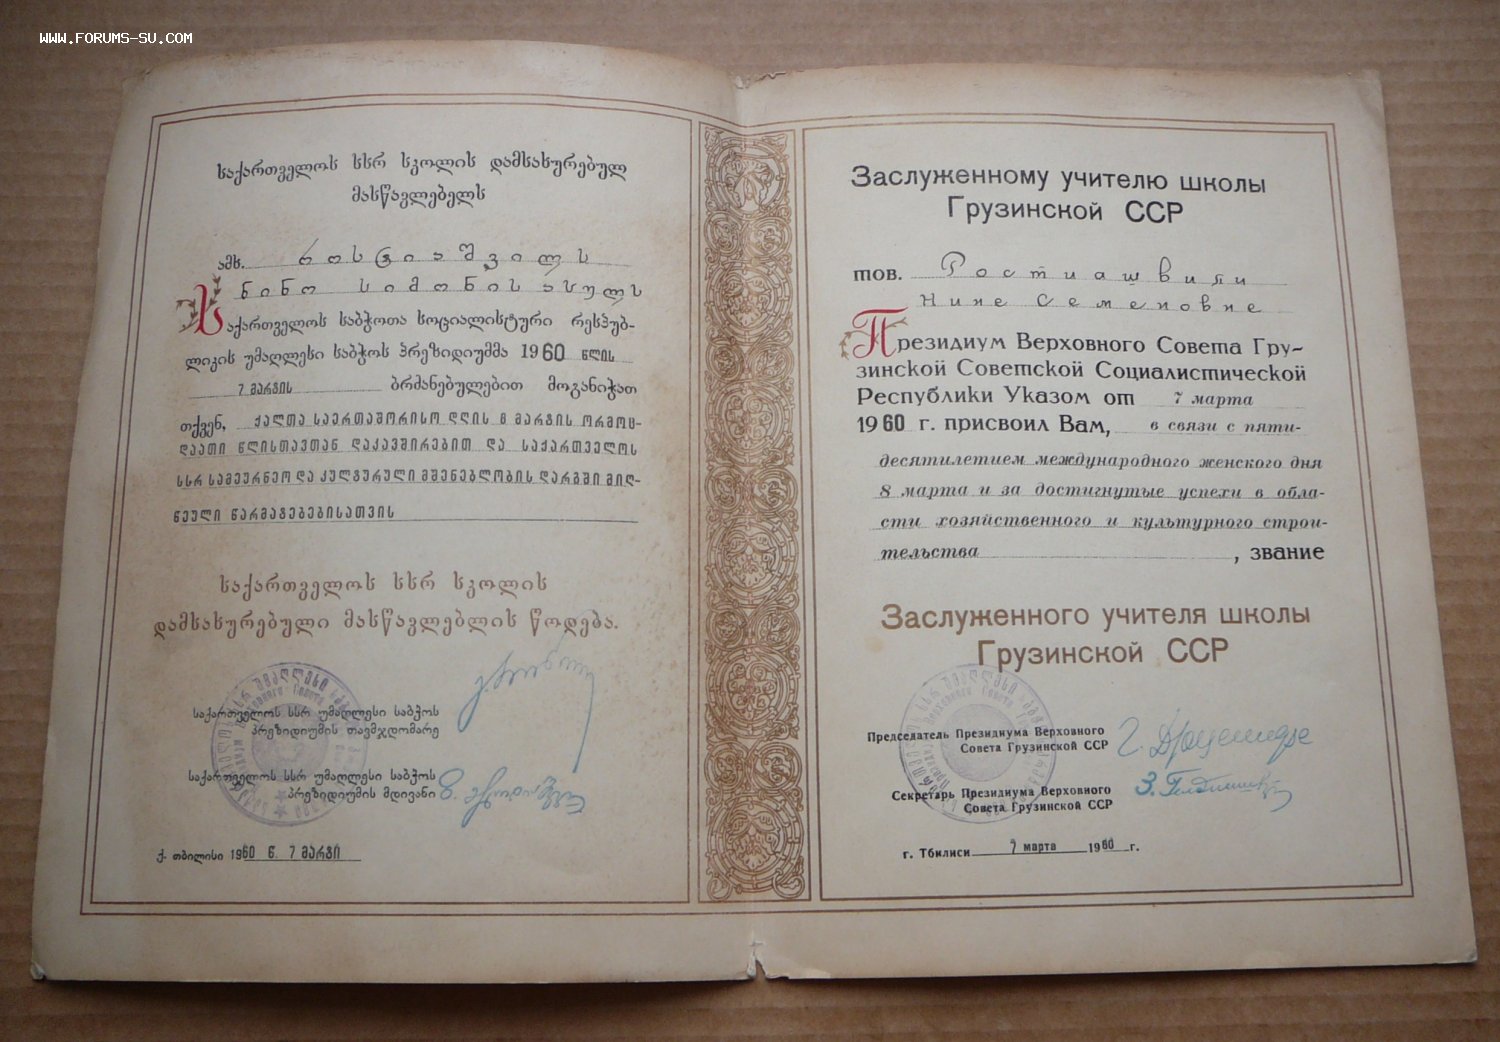 www.forums-su.com
საქართველოს სსრ სკოლის დამსახურებულ
მასწავლებელს
ამხ. როსტიაშვილს
ნინო სიმონის ასულს
საქართველოს საბჭოთა სოციალისტური რესპუბ-
ლიკის უმაღლესი საბჭოს პრეზიდიუმმა 1960 წლის
7 მარტის ბრძანებულებით მოგანიჭათ
თქვენ, ქალთა საერთაშორისო დღის 8 მარტის ორმოც-
დაათი წლისთავთან დაკავშირებით და საქართველოს
სსრ სამეურნეო და კულტურული მშენებლობის დარგში მიღ-
წეული წარმატებებისათვის
საქართველოს სსრ სკოლის
დამსახურებული მასწავლებლის წოდება.
საქართველოს სსრ უმაღლესი საბჭოს
პრეზიდიუმის თავმჯდომარე
საქართველოს სსრ უმაღლესი საბჭოს
პრეზიდიუმის მდივანი
ქ. თბილისი 1960 წ. 7 მარტი
Заслуженному учителю школы
Грузинской ССР
тов. Ростиашвили
Нине Семеновне
Президиум Верховного Совета Гру-
зинской Советской Социалистической
Республики Указом от 7 марта
1960 г. присвоил Вам, в связи с пяти-
десятилетием международного женского дня
8 марта и за достигнутые успехи в обла-
сти хозяйственного и культурного строи-
тельства, звание
Заслуженного учителя школы
Грузинской ССР
Председатель Президиума Верховного
Совета Грузинской ССР
Секретарь Президиума Верховного
Совета Грузинской ССР
г. Тбилиси 7 марта 1960 г.